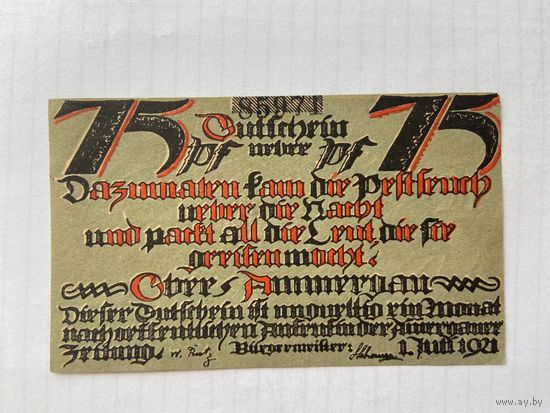 75 85971 75
Gutschein
pf ueber pf
Dazumalen kam die Pestseuch
ueber die Nacht
und packt all die Leut, die sie
greifen mocht.
Ober-Ammergau
Dieser Gutschein ist ungueltig ein Monat
nach oeffentlichem Aufruf in der Ammergauer
Zeitung. Bürgermeister: 1. Juli 1921
www.ay.by